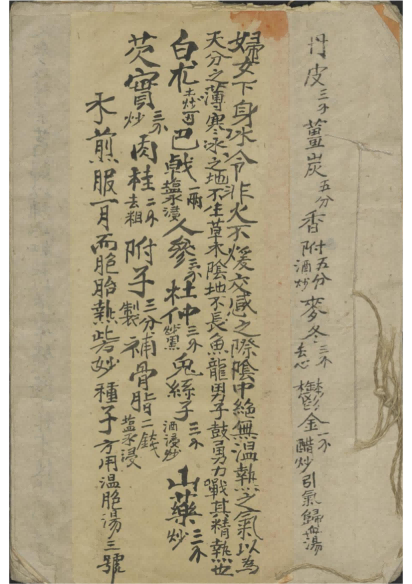 丹皮三分薑炭五分香附五分酒炒麥冬三分去心鬱金一分醋炒引氣歸血湯
婦女下身冰冷非火不煖交感之際陰中絕無溫熱之氣以為
天分之薄寒冰之地不生草木陰地不長魚龍男子鼓勇力戰其精熱也
白朮土炒一兩巴戟一兩塩水浸人參三分杜仲三分炒黑兔絲子三分酒浸炒山藥三分炒
芡實三分炒肉桂二分去粗附子三分製補骨脂二錢塩水浸
水煎服一月而胞胎熱此妙種子方用溫胞湯三號